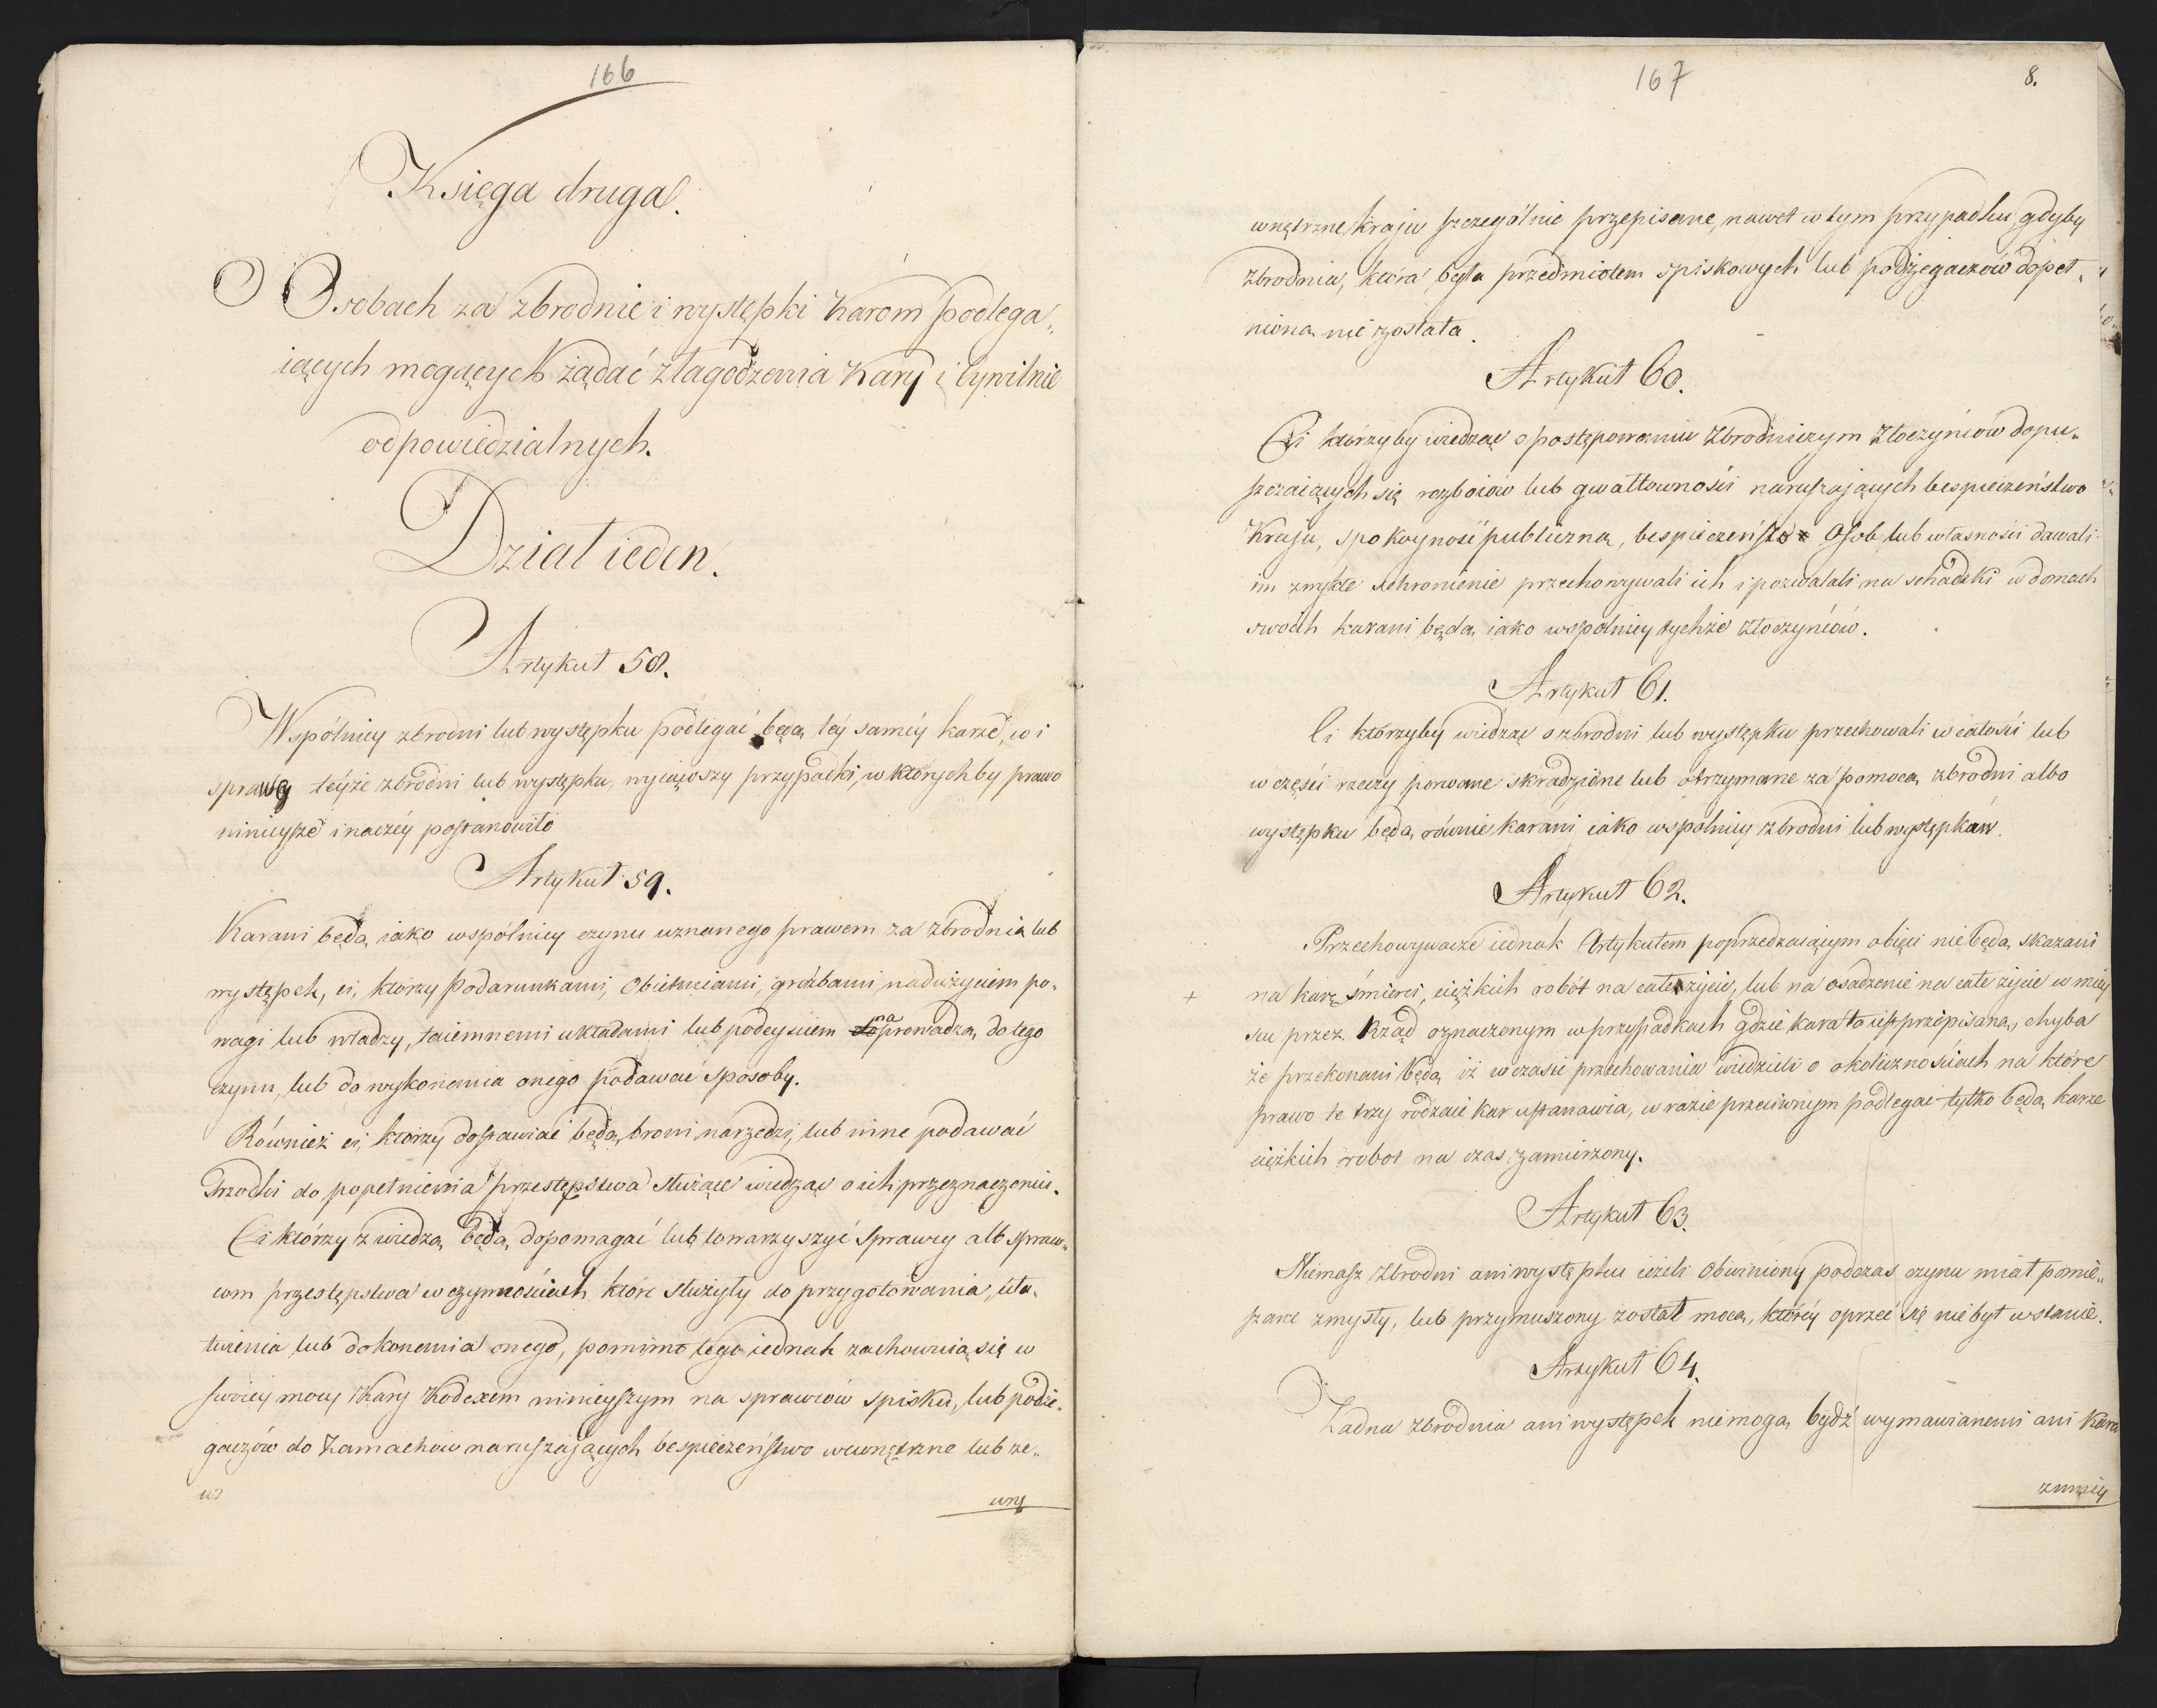 166
Księga druga.
O Osobach za zbrodnie i występki karom podlega„
iących mogących żądać złagodzenia kary i Cywilnie
odpowiedzialnych.
Dział ieden.
Artykuł 58.
Wspólnicy zbrodni lub występku podlegać będą téy saméy karze, co i
sprawcy téyże zbrodni lub występku, wyiąwszy przypadki, w którychby prawo
ninieysze inaczéy postanowiło
Artykuł 59.
Karani będą iako wspólnicy czynu uznanego prawem za zbrodnią lub
występek, ci, którzy podarunkami, obietnicami, groźbami, nadużyciem po„
wagi lub władzy, taiemnemi układami lub podeyściem do na prowadzą do tego
czynu, lub do wykonania onego podawać sposoby.
Również ci, którzy dostawiać będą broni, narzędzi, lub inne podawać
Srzodki do popełnienia przestępstwa służące wiedząc o ich przeznaczeniu.
Ci którzy z wiedzą będą dopomagać lub towarzyszyć Sprawcy alb spraw„
com przestępstwa w czynnościach które służyły do przygotowania, uła„
twienia lub dokonania onego, pomimo tego iednak zachowuią się w
swoiéy mocy Kary Kodexem ninieyszym na sprawców spisku, lub podże„
gaczów do Zamachów naruszaiących bespieczeństwo wewnętrzne lub ze„
wnę
167
8.
wnętrzne kraju szczególnie przepisane, nawet w tym przypadku, gdyby
zbrodnia, która była przedmiotem spiskowych lub podżegaczów dopeł„
niona nie została.
Artykuł 60.
Ci którzyby wiedząc o postępowaniu Zbrodniczym Złoczyńców dopu„
szczaiących się rozboiów lub gwałtowności naruszających bespieczeństwo
Kraju, spokoyność publiczną, bespieczeństo Osob lub własności dawali
im zwykłe schronienie przechowywali ich i pozwalali na schadzki w domach
swoich karani będą iako wspólnicy tychże złoczyńców.
Artykuł 61.
Ci którzyby wiedząc o zbrodni lub występku przechowali w całości lub
w części rzeczy porwane skradzione lub otrzymane za pomocą zbrodni albo
występku będą równie karani iako wspólnicy zbrodni lub występków.
Artykuł 62.
Przechowywacze iednak Artykułem poprzedzaiącym obięci nie będą skazani
+ na karę śmierci, ciężkich robót na całe życie, lub na osadzenie na całe życie w miey
scu przez Rząd oznaczonym w przypadkach gdzie kara ta iest przepisana, chyba
że przekonani będą iż w czasie przechowania wiedzieli o okolicznościach na które
prawo te trzy rodzaie kar ustanawia, w razie przeciwnym podlegać tylko będą karze
ciężkich robot na czas zamierzony.
Artykuł 63.
Niemasz zbrodni ani występku ieżeli Obwiniony podczas czynu miał pomie„
szane zmysły, lub przymuszony został mocą, któréy oprzeć się nie był w stanie.
Artykuł 64.
Żadna zbrodnia ani występek nie mogą bydź wymawianemi ani Kara
zmniéy